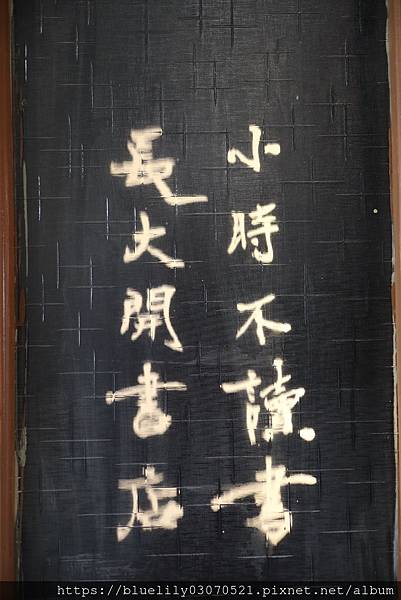 小時不讀書
長大開書店
https://bluelily03070521.pixnet.net/album